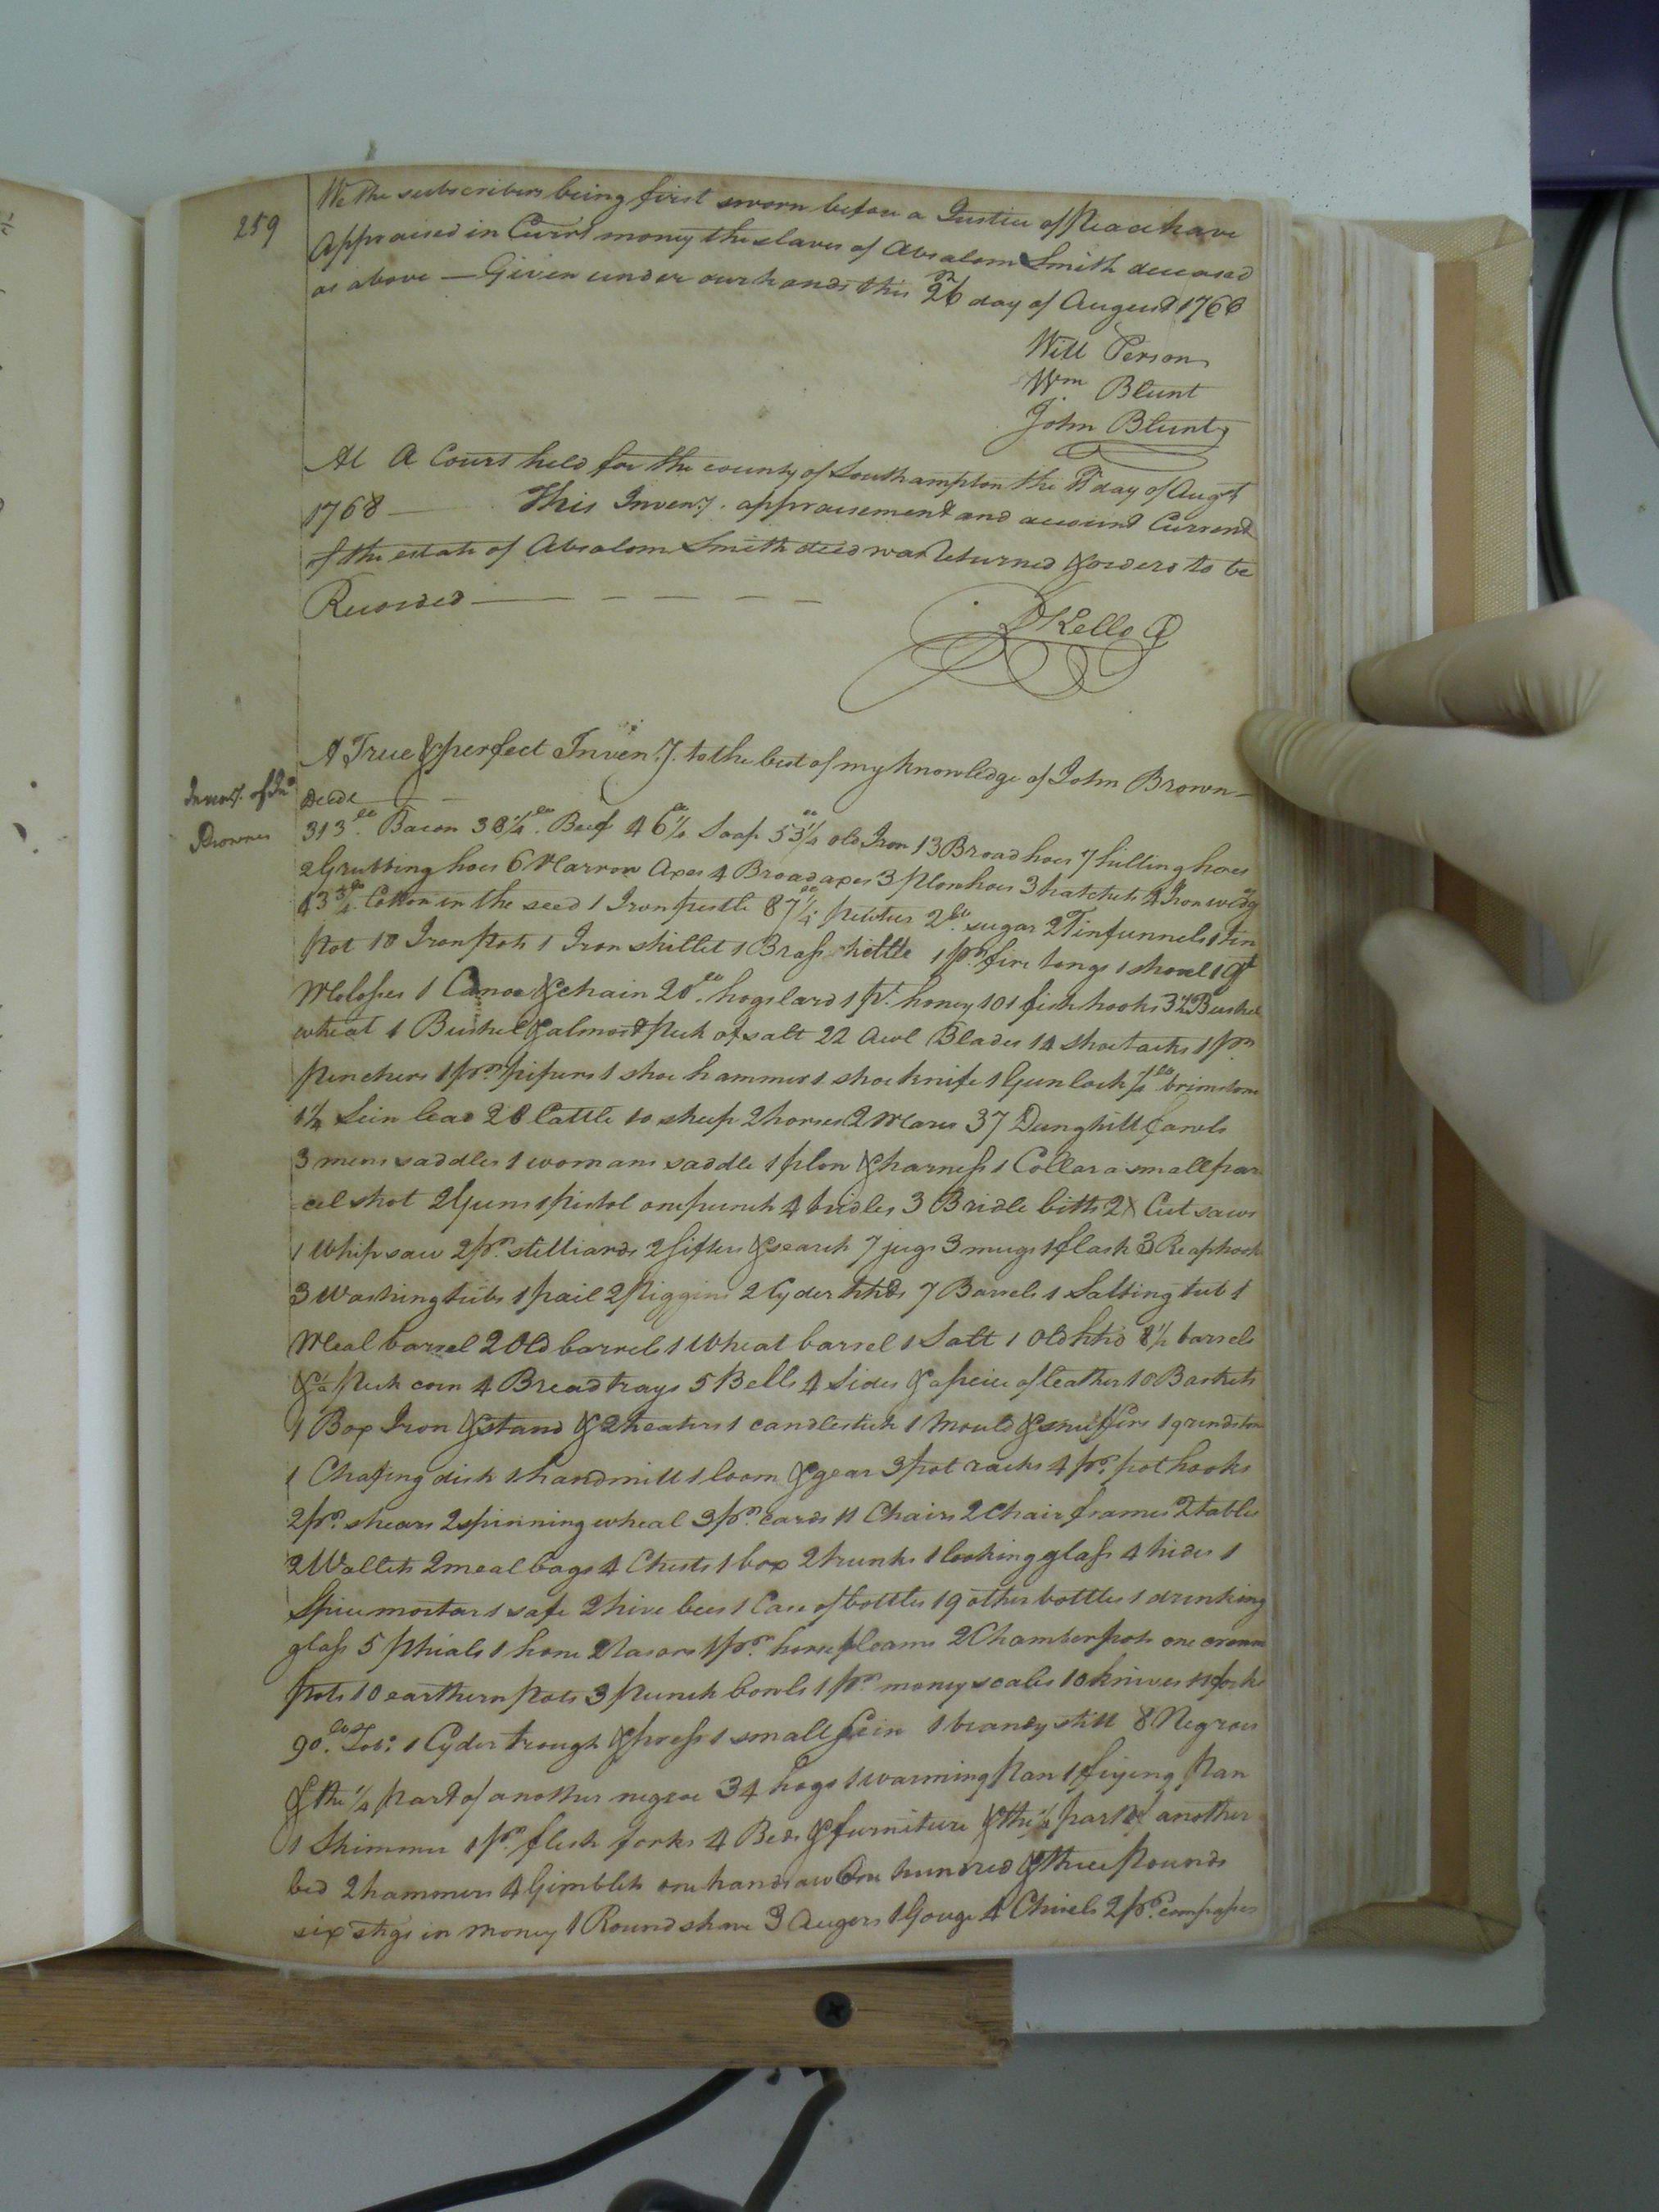 259
We the subscribers being first sworn before a Justice of Peace have
Appraised in Currt money the slaves of Absalom Smith deceased
as above — Given under our hands this 26th day of August 1768
Will Person
Wm Blunt
John Blunt
At A Court held for the county of Southampton the 11 day of Augt
1768 — This Inveny. appraisement and account Current
of the estate of Absalom Smith decd was Returned & orderd to be
Recorded — — — — —
R Kello C
A True & perfect Inveny. to the best of my knowledge of John Brown —
Inveny. of Jno
Browns
Decd
313 lb. Bacon 38¼ lb. Beef 46½ lb Soap 53¼ lb old Iron 13 Broad hoes 7 hilling hoes
2 Grubbing hoes 6 Narrow Axes 4 Broad axes 3 Plow hoes 3 hatchets 4 Iron wedg
43¾ lb. Cotton in the seed 1 Iron pestle 87¼ lb pewter 2 lb. sugar 2 Tin funnels 1 tin
Pot 10 Iron Pots 1 Iron skillet 1 Brass kettle 1 pr. fire tongs 1 shovel 1 qt
Molosses 1 Canoe & chain 20 lb. hogs lard 1 pt. honey 101 fish hooks 3½ Bushel
wheat 1 Bushel & almost Peck of salt 22 Awl Blades 14 shoe tacks 1 pr
Pinchers 1 pr. pipers 1 shoe hammer 1 shoe knife 1 Gun lock ½ lb brimstone
1¼ Sein lead 28 Cattle 10 sheep 2 horses 2 Mares 37 Dunghill fowls
3 mens saddles 1 womans saddle 1 plow & harness 1 Collar a small par
=cel shot 2 Guns 1 pistol one punch 4 bridles 3 Bridle bitts 2 X Cut saws
1 Whip saw 2 pr. stilliards 2 sifters & search 7 jugs 3 mugs 1 flask 3 Reaphook
3 Washing tubs 1 pail 2 Piggins 2 Cyder hhds 7 Barrels 1 Salting tub 1
Meal barrel 2 Old barrels 1 Wheat barrel 1 Salt 1 Old hhd 8½ barrels
& ½ Peck corn 4 Bread trays 5 Bells 4 Sides & a peice of leather 10 Baskets
1 Box Iron & stand & 2 heaters 1 candlestick 1 Mould & snuffers 1 grindston
1 Chafing dish 1 handmill 1 loom & gear 3 pot racks 4 pr. pot hooks
2 pr. shears 2 spinning wheal 3 pr. cards 11 Chairs 2 Chair frames 2 tables
2 Wallets 2 meal bags 4 Chests 1 box 2 trunks 1 looking glass 4 hides 1
Spice mortar 1 safe 2 hive bees 1 Case of bottles 19 other bottles 1 drinking
glass 5 Phials 1 hone 2 rasors 1 pr. horse fleams 2 Chamber pots one cream
Pots 10 earthern Pots 3 Punch bowls 1 pr. money scales 10 knives 11 forks
90 lb. Tobo. 1 Cyder trough & press 1 small Sein 1 brandy still 8 Negroes
& the ¼ Part of another negroe 34 hogs 1 warming Pan 1 frying Pan
1 Skimmer 1 pr. flesh forks 4 Beds & furniture & the ½ part of another
bed 2 hammers 4 Gimblets one handsaw One hundred & three Pounds
six shgs in money 1 Round shave 3 Augers 1 Gouge 4 Chisels 2 pr. compasses